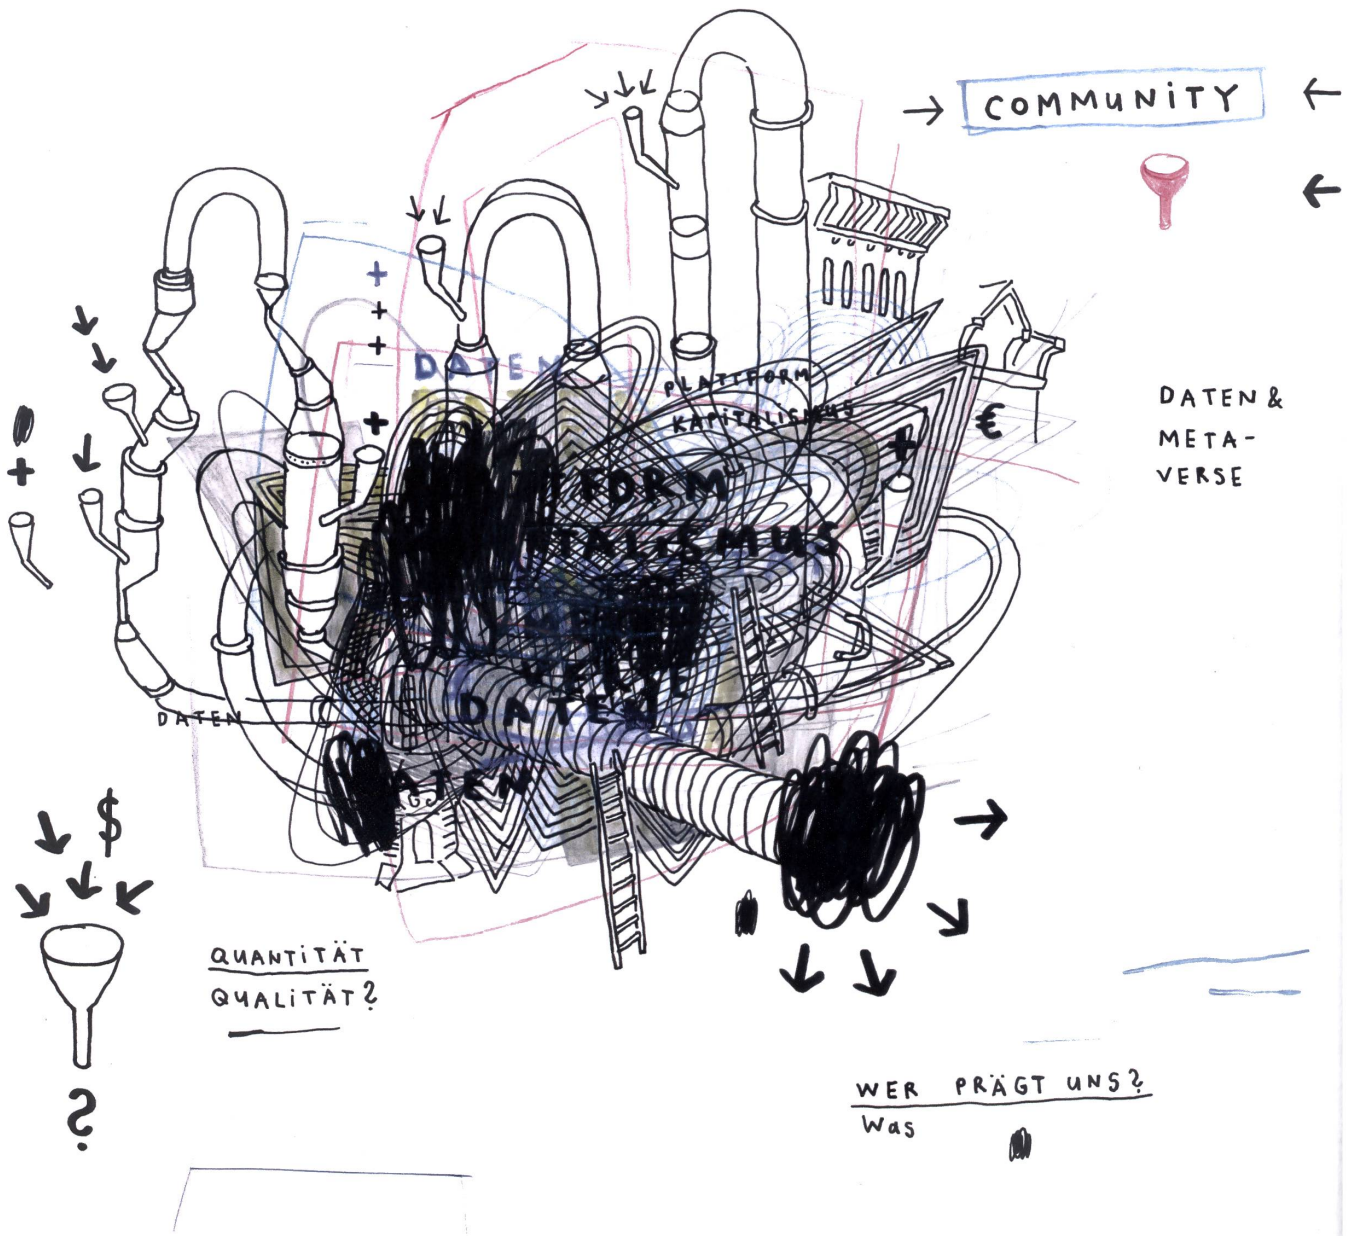 COMMUNITY
DATEN
PLATTFORM
KAPITALISMUS
€
DATEN &
META-
VERSE
FORM
TALISMUS
DATEN
DATEN
ATEN
$
QUANTITÄT
QUALITÄT?
?
WER PRÄGT UNS?
Was